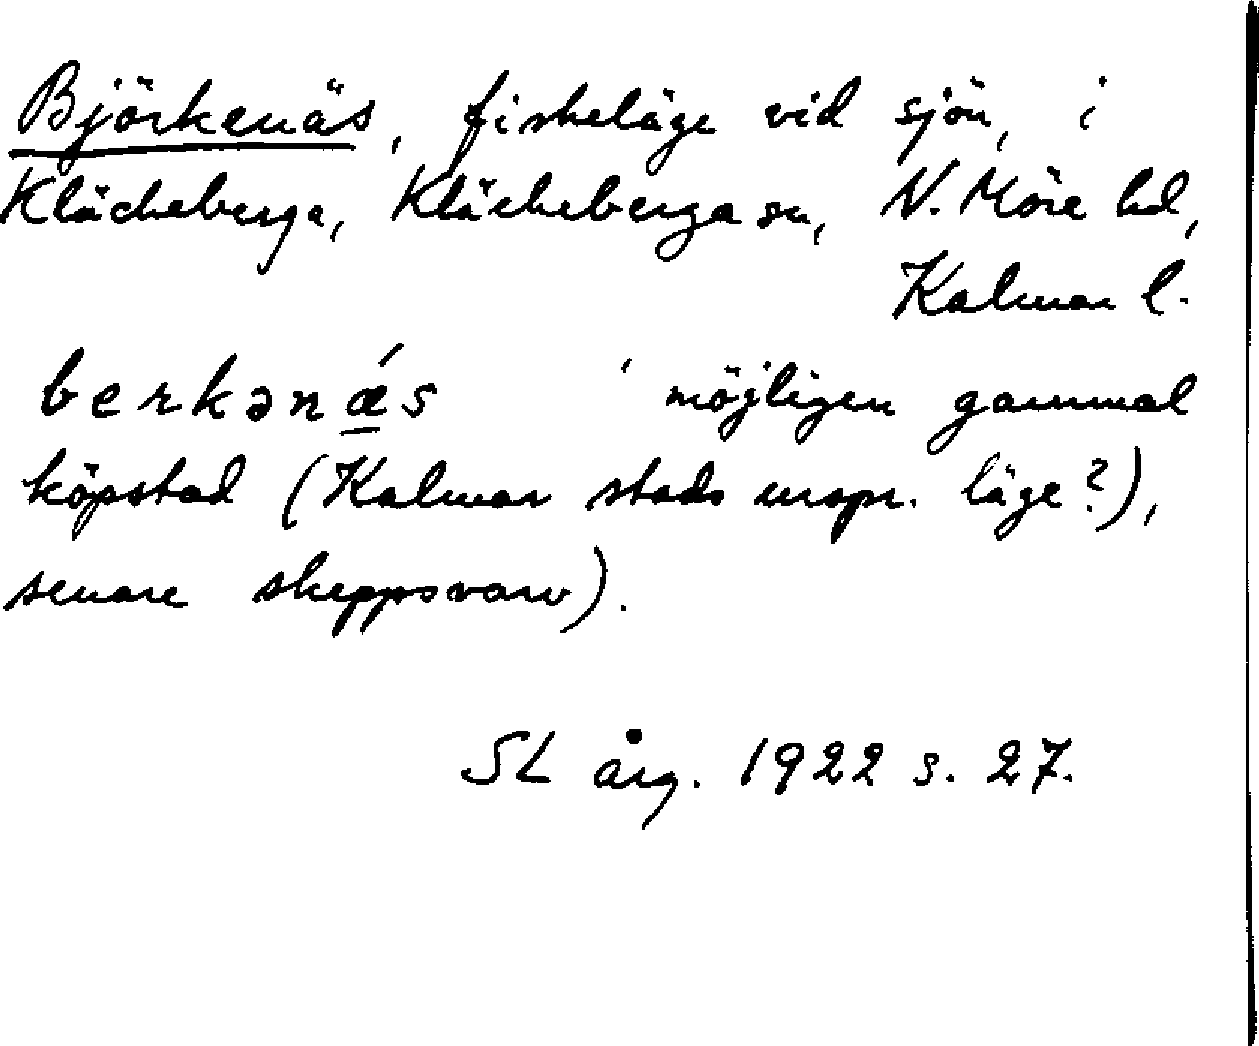 Björkenäs, fiskeläge vid sjön, i
Kläckeberga, Kläckeberga sn, N. Möre hd,
Kalmar l.
berkənǽs ' möjligen gammal
köpstad (Kalmar stads urspr. läge?),
senare skeppsvarv).
SL årg. 1922 s. 27.